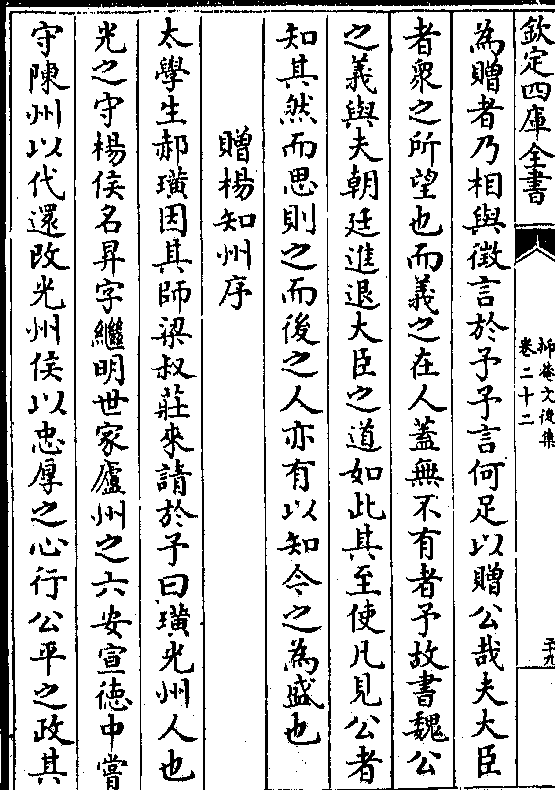 欽定四庫全書
抑菴文後集
卷二十二
三十九
為贈者乃相與徵言於予予言何足以贈公哉夫大臣
者衆之所望也而義之在人蓋無不有者予故書魏公
之義與夫朝廷進退大臣之道如此其至使凡見公者
知其然而思則之而後之人亦有以知今之為盛也
贈楊知州序
太學生郝璜因其師梁叔莊來請於予曰璜光州人也
光之守楊侯名昇字繼明世家廬州之六安宣徳中嘗
守陳州以代還改光州侯以忠厚之心行公平之政其